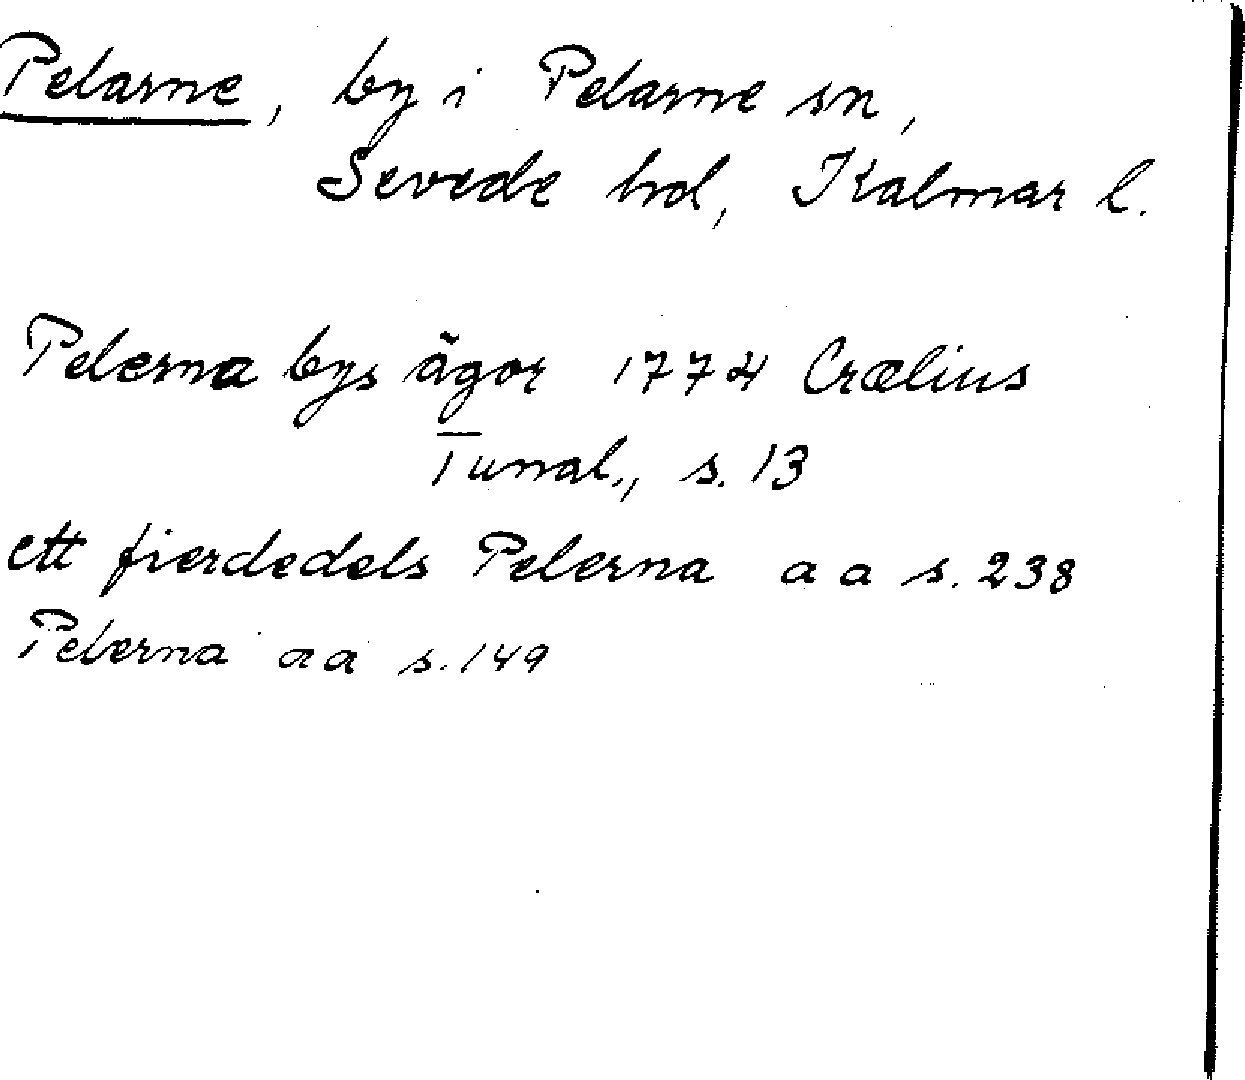 Pelarne, by i Pelarne sn,
Sevede hd, Kalmar l.
Pelerna bys ägor 1774 Crælius
Tunal., s. 13
ett fierdedels Pelerna a a s. 238
Pelerna a a s. 149